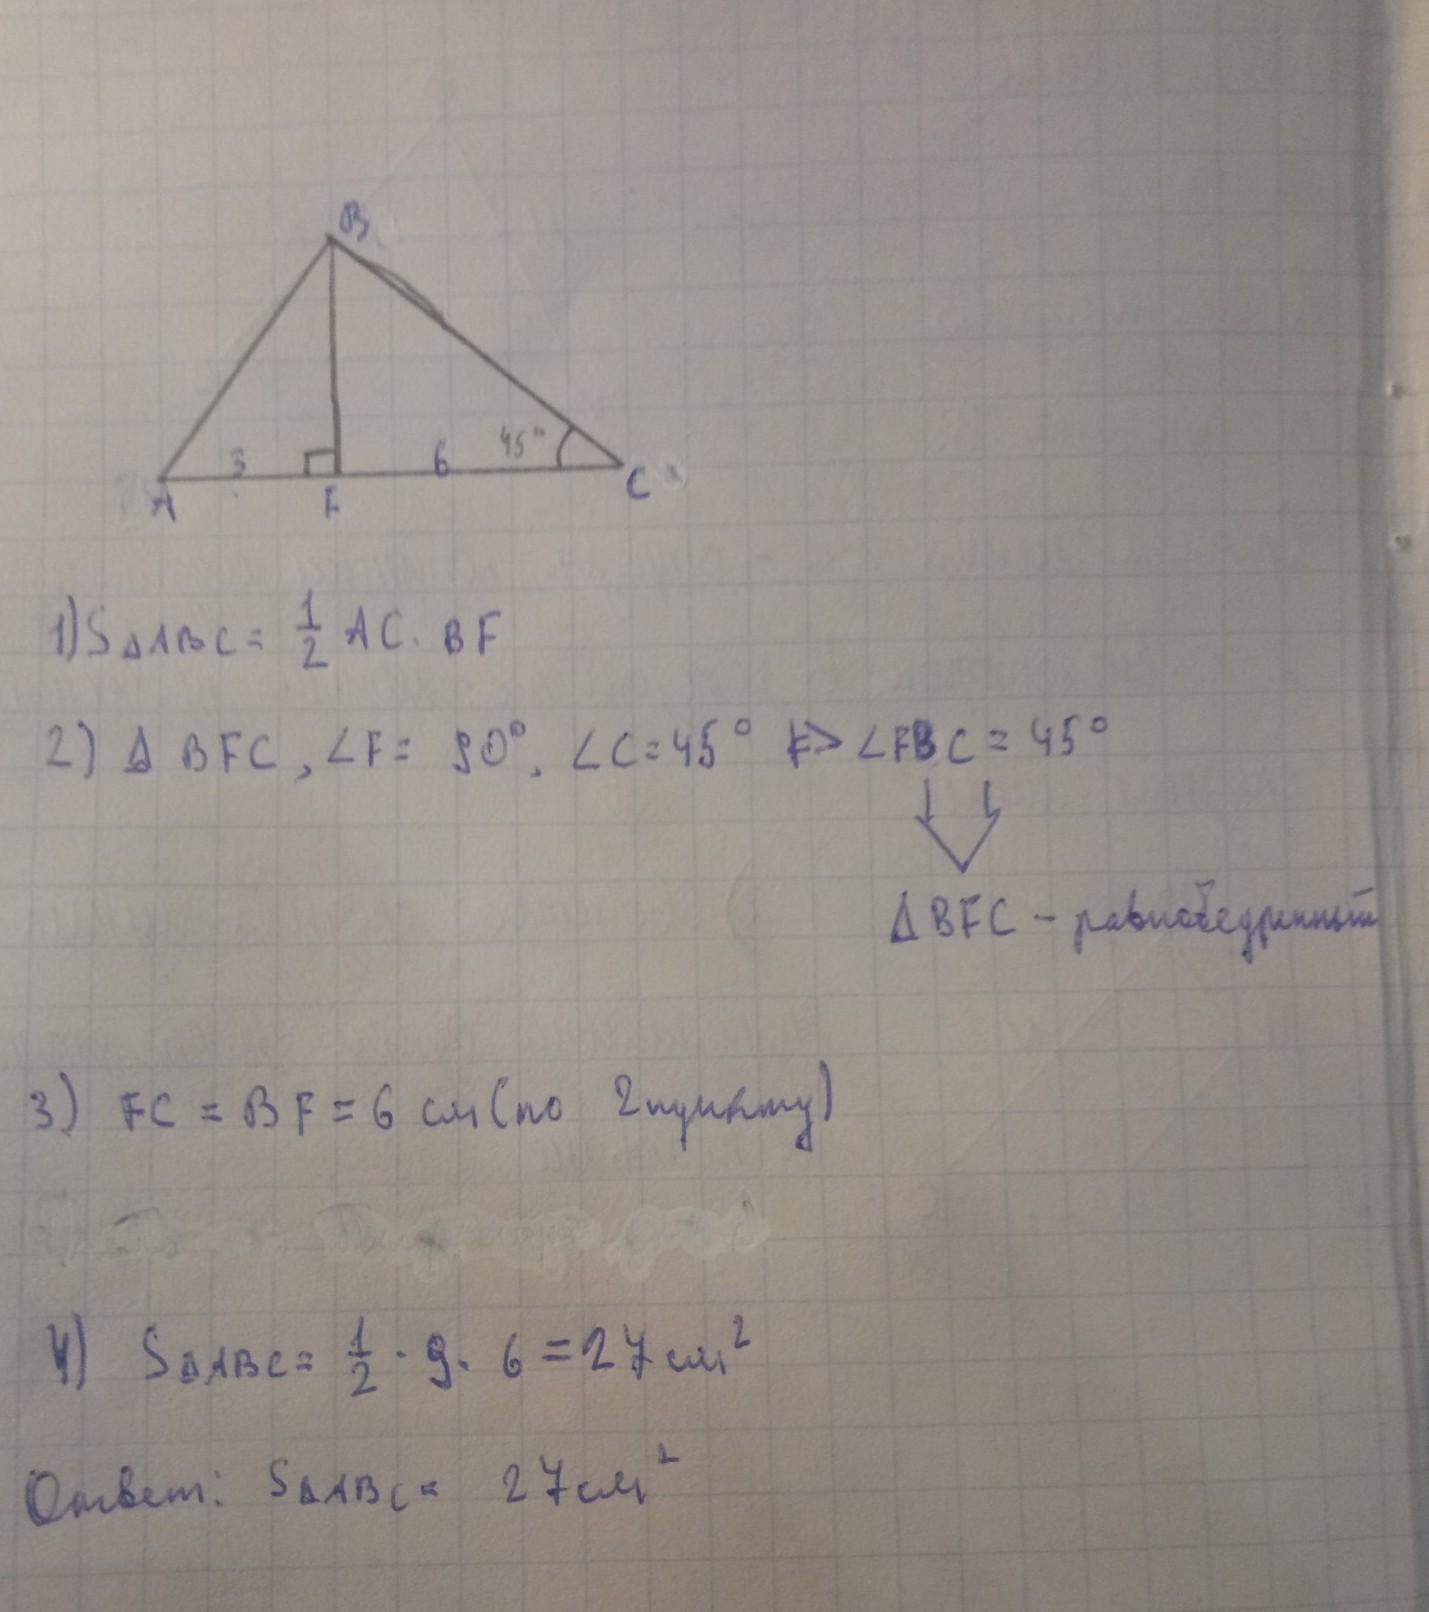 B
3
6
45°
A
F
C
1) S△ABC = 1/2 AC · BF
2) △ BFC, ∠F = 90°, ∠C = 45° => ∠FBC = 45°
△BFC - равнобедренный
3) FC = BF = 6 см (по 2 пункту)
4) S△ABC = 1/2 · 9 · 6 = 27 см²
Ответ: S△ABC = 27 см²